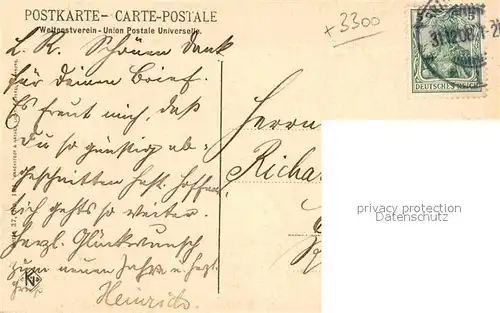 POSTKARTE - CARTE-POSTALE
Weltpostverein - Union Postale Universelle.
+3300
31.12.06.
DEUTSCHES REICH
L. K. Schönen Dank
für Deinen Brief.
Es freut mich, daß
Du so günstig ab-
geschnitten hast. Hoffen
lich gehts so weiter.
Herzl. Glückwunsch
zum neuen Jahre u. herzl.
Gruß
Heinrich.
Herrn
Richa
privacy protection
Datenschutz